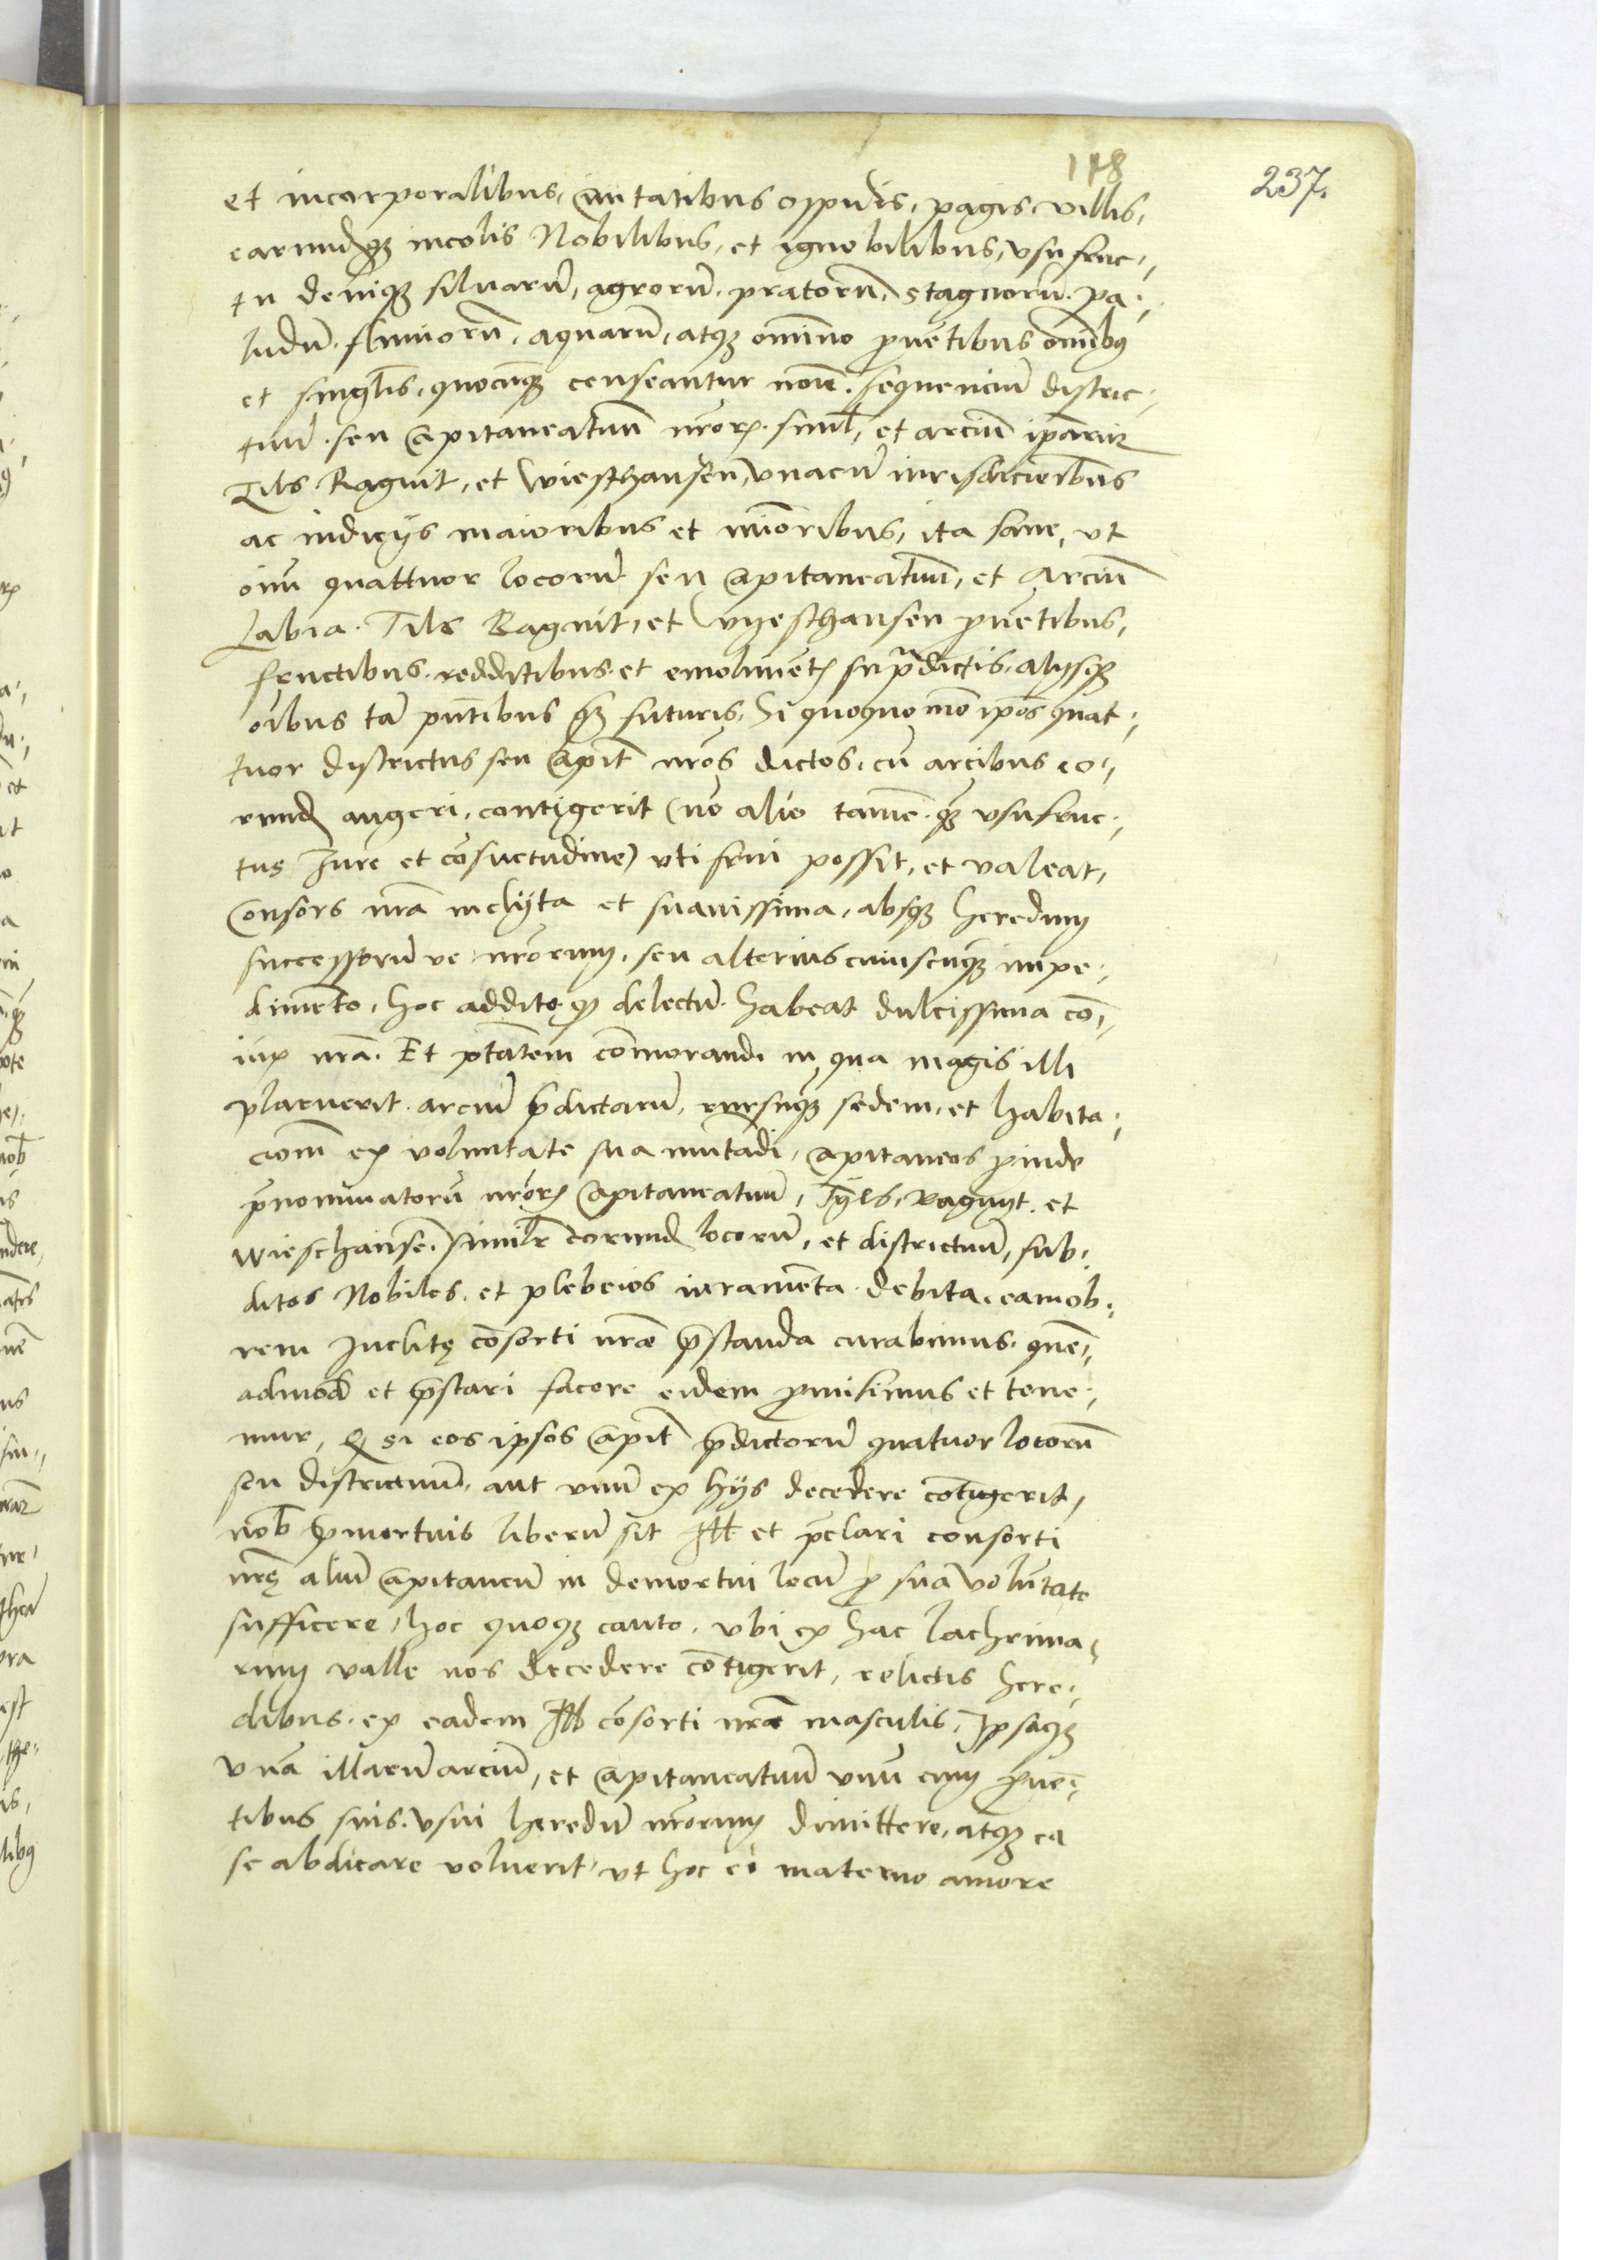 148
237.
et incorporalibus, Ciuitatibus oppidis, pagis, villis,
earundq3 incolis Nobilibus, et ignobilibus, vsu fruc-
tu deniq3 siluarū, agrorū, pratorū, stagnorū, pa-
ludū, fluuiorū, aquarū, atq3 omīno ꝓuētibus omībꝰ
et singlis, quocūq3 censeantur noīe, sequenciū distric-
tuū, seu Capitaneatuum nrōrꝫ simul, et arciū ipārū
Tils Ragnit, et Wiesthausen, vnacū iurisdictiōibus
ac iudicijs maioribus et miōribus, ita sane, vt
oīm quattuor locorū seu Capitaneatuū, et Arciū
Labia, Tils Ragnit, et Vyesthausen ꝓuētibus,
fructibus, redditibus, et emolumētꝫ supradictis, alijsq3
oībus tā pn̄tibus q̄ȝ futuris, si quoquomō ipōs quat-
tuor districtus seu Capit nrōs dictos, cū arcibus eo-
rund augeri, contigerit (nō alio tamē q̄ȝ vsufruc-
tus Iure et cōsuetudine) vti frui possit, et valeat,
Consors nrā inclyta et suauissima, absq3 heredum
successorū ve nrōrum, seu alterius cuiuscuq3 impe-
dimēto, hoc addito, q delectum habeat dulcissima cō-
iux nrā. Et ptātem commorandi in qua magis illi
placuerit arciū p̄dictarū, rursusq3 sedem, et habita-
ciom ex voluntate sua mutādi, Capitaneos ꝓinde
p̄nominatorū nrōrꝫ Capitaneatuū, Tÿls, Ragnyt, et
Wieschausē, similr eorund locorū, et districtuū, sub-
ditos Nobiles, et plebeios iuramēta debita, eamob-
rem Inclitę cōsorti nrāe p̄standa curabimus, quē-
admod et p̄stari facere eidem ꝓmisimus et tene-
mur, Q si eos ipsos Capit p̄dictorū quatuor locorū
seu districtuū, aut vnū ex hijs decedere cōtigerit,
nob p̄mortuis liberū sit Ill et p̄clari consorti
nrę aliū Capitaneū in demortui locū ꝓ sua volūtate
sufficere, hoc quoq3 cauto, vbi ex hac lachrima-
rum valle nos decedere cōtigerit, relictis here-
dibus, ex eadem Ill cōsorti nrā masculis, Ipsaq3
vnā illarū arciū, et Capitaneatuū vnū cum ꝓuē-
tibus suis, vsui heredū nrōrum dimittere, atq3 ea
se abdicare voluerit, vt hoc ei materno amore